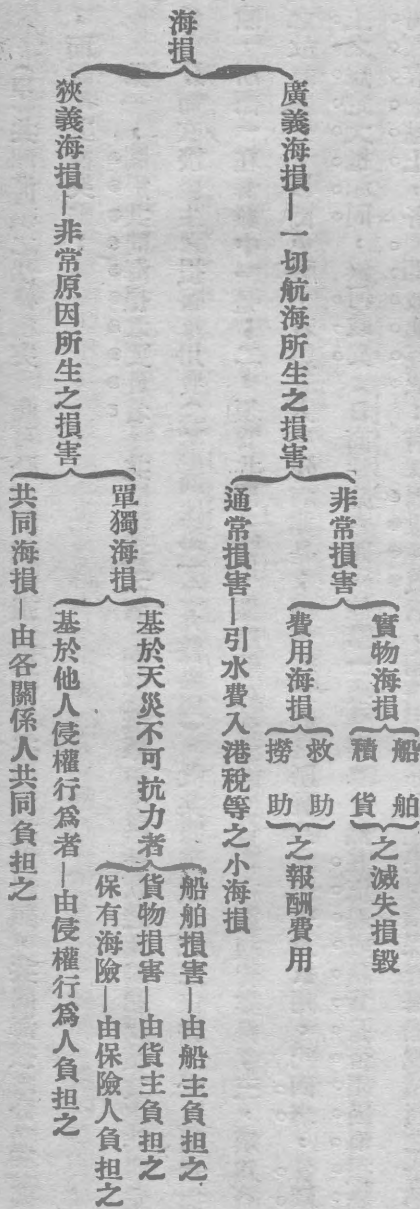 海損
廣義海損—一切航海所生之損害
非常損害
實物海損
船舶
積貨
之滅失損毀
費用海損
救助
撈助
之報酬費用
通常損害—引水費入港稅等之小海損
狹義海損—非常原因所生之損害
單獨海損
基於天災不可抗力者
船舶損害—由船主負担之
貨物損害—由貨主負担之
保有海險—由保險人負担之
基於他人侵權行爲者—由侵權行爲人負担之
共同海損—由各關係人共同負担之